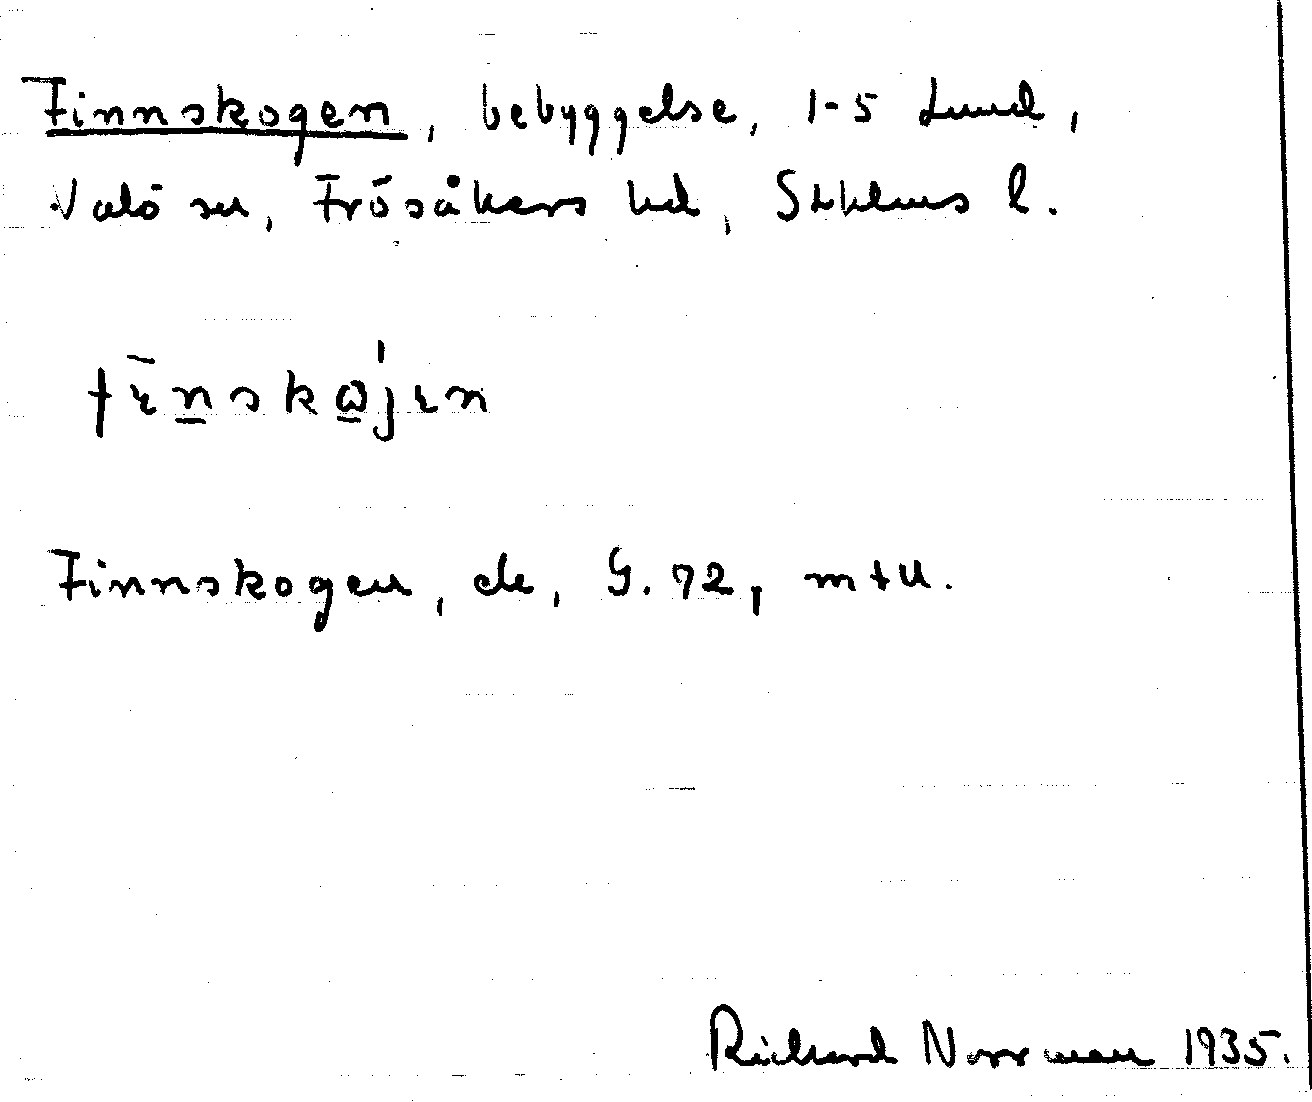 Finnskogen, bebyggelse, 1-5 Lund,
Valö sn, Frösåkers hd, Sthlms l.
fīnskωjen
Finnskogen, de, G. 72, mtU.
Richard Norrman 1935.